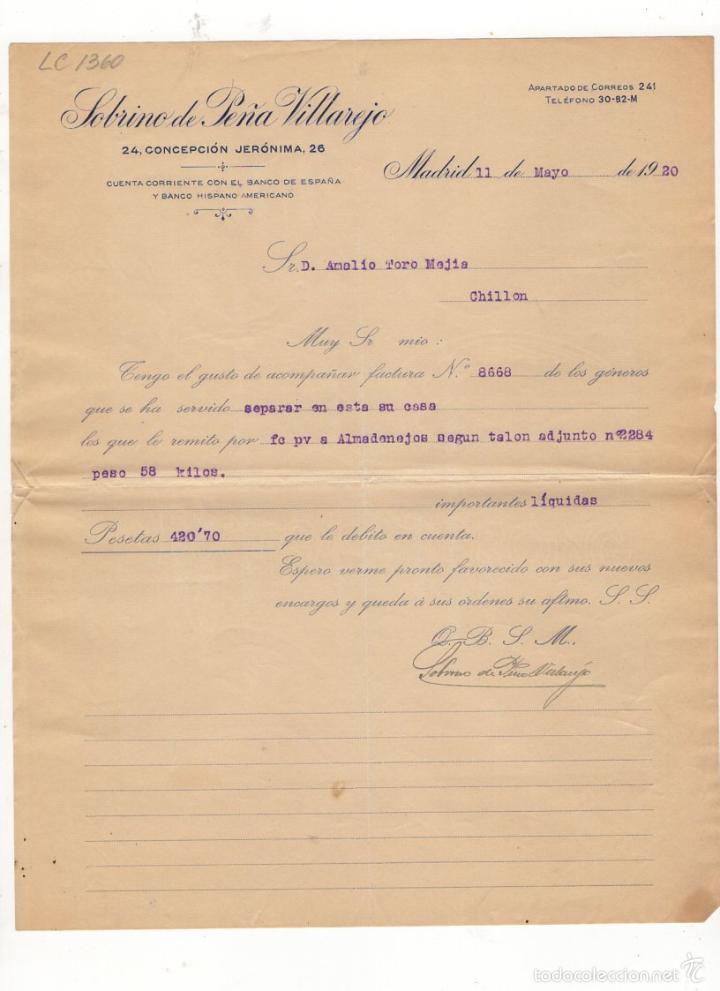 LC 1360
Sobrino de Peña Villarejo
24, CONCEPCIÓN JERÓNIMA, 26
CUENTA CORRIENTE CON EL BANCO DE ESPAÑA
Y BANCO HISPANO AMERICANO
APARTADO DE CORREOS 241
TELÉFONO 30-82-M
Madrid 11 de Mayo de 1920
Sr. D. Amalio Toro Mejia
Chillon
Muy Sr mio:
Tengo el gusto de acompañar factura N.º 8668 de los géneros
que se ha servido separar en esta su casa
los que le remito por fc pv a Almadenejos segun talon adjunto nº2284
peso 58 kilos.
importantes líquidas
Pesetas 420'70 que le debito en cuenta.
Espero verme pronto favorecido con sus nuevos
encargos y queda á sus órdenes su aftmo. S. S.
Q. B. S. M.,
Sobrino de Peña Villarejo
todocoleccion.net